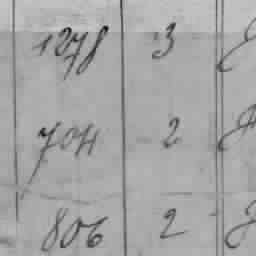 1278 3
704 2
806 2